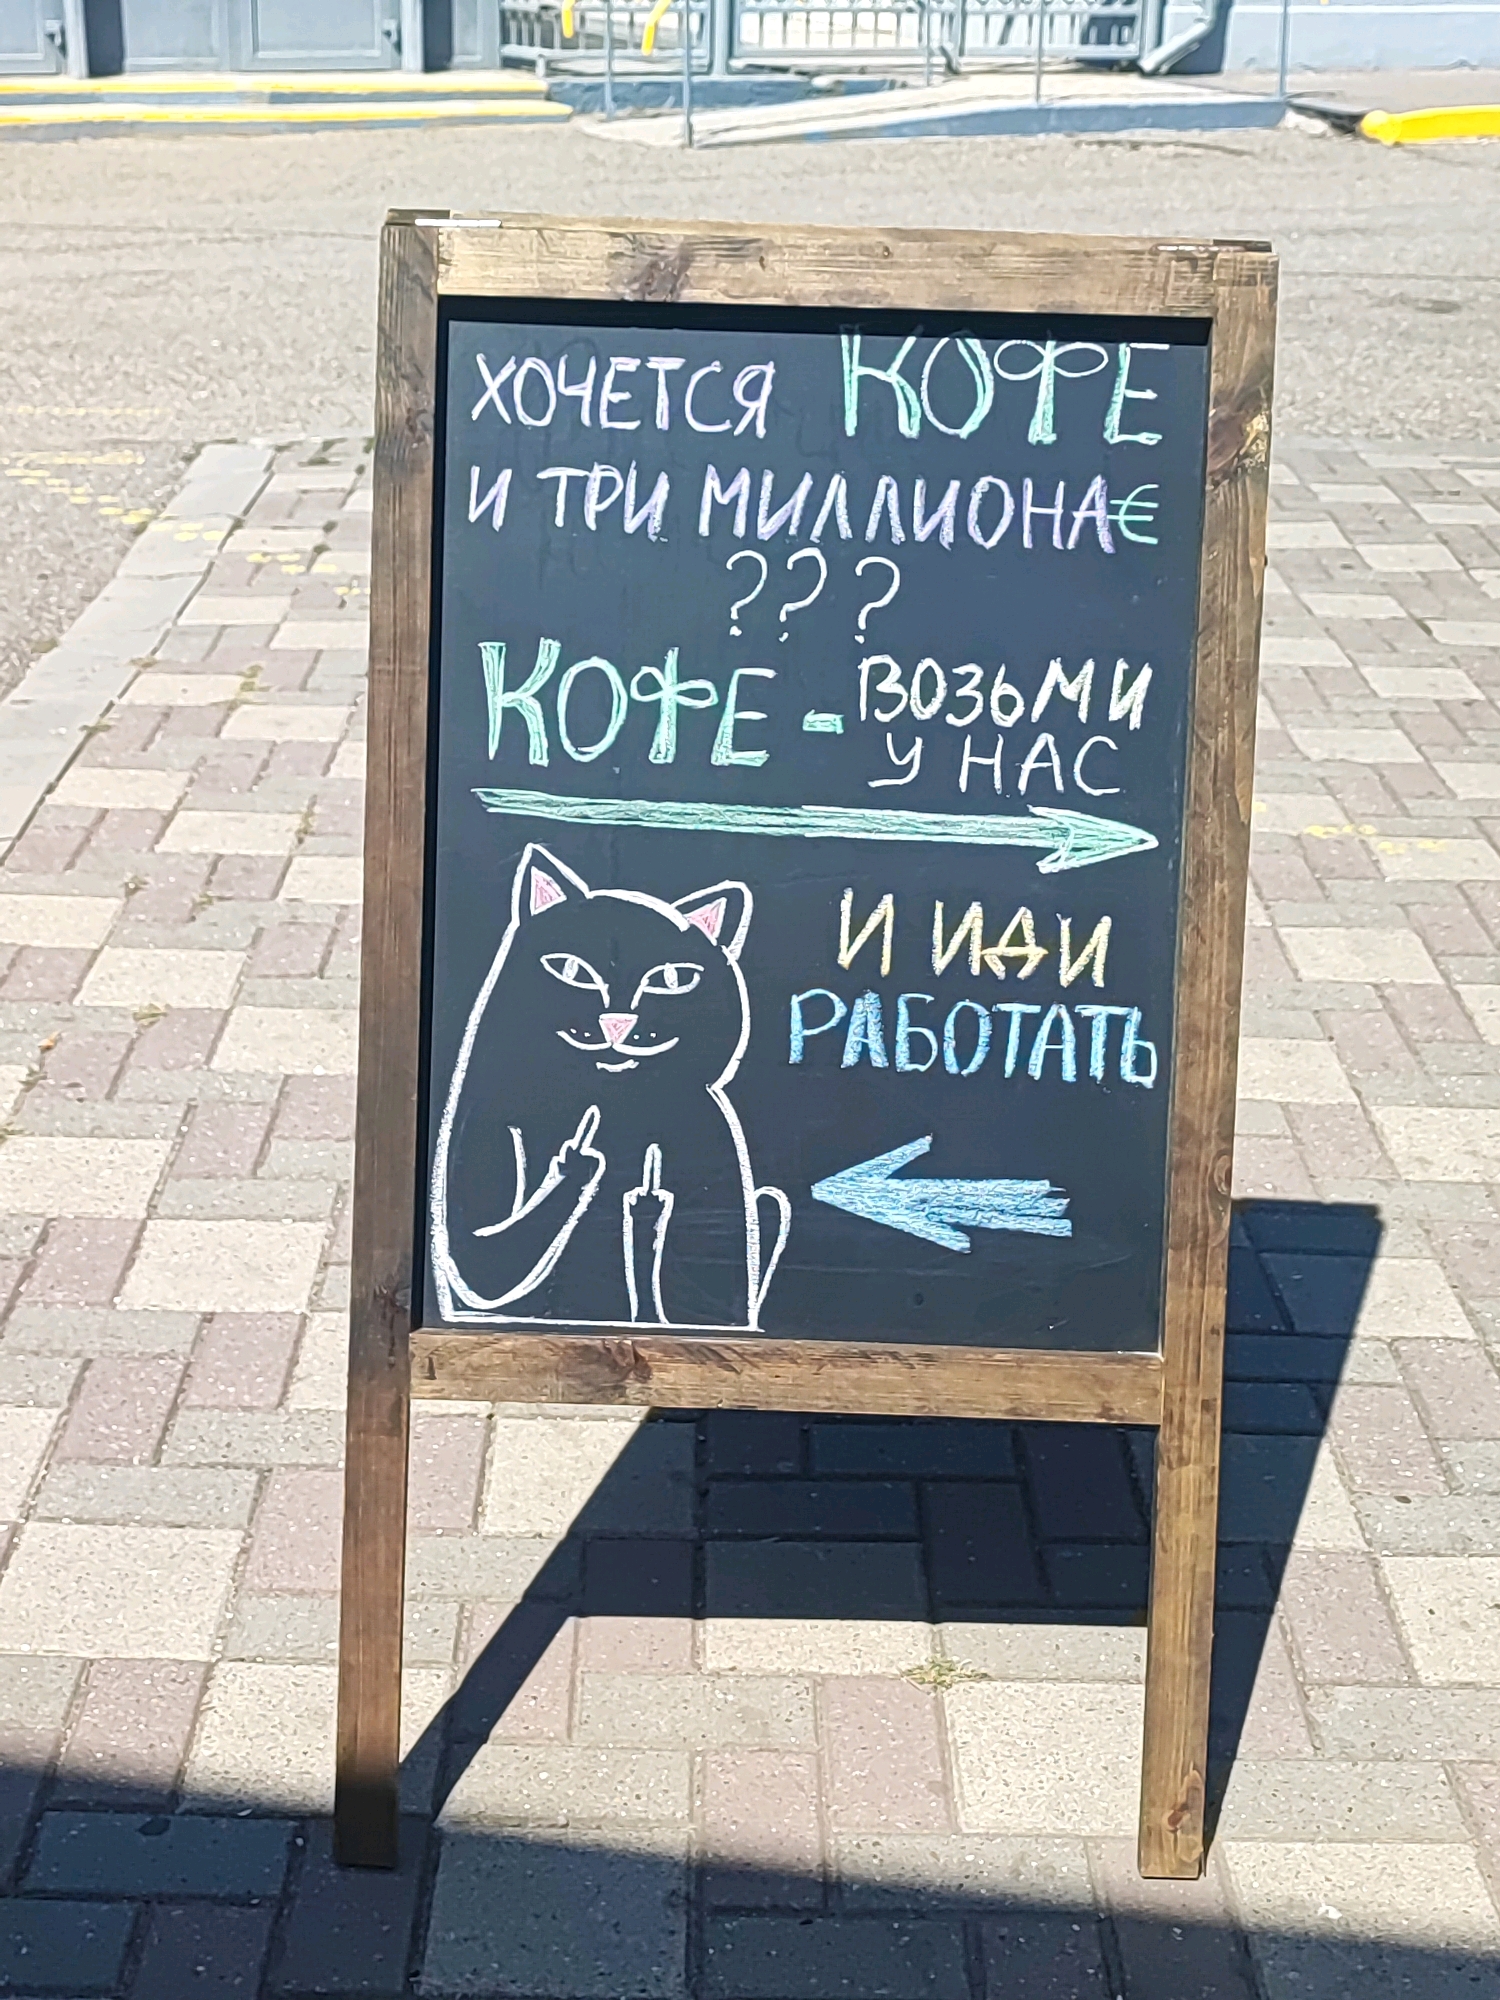 ХОЧЕТСЯ КОФЕ
И ТРИ МИЛЛИОНА€
???
КОФЕ - ВОЗЬМИ
У НАС
И ИДИ
РАБОТАТЬ